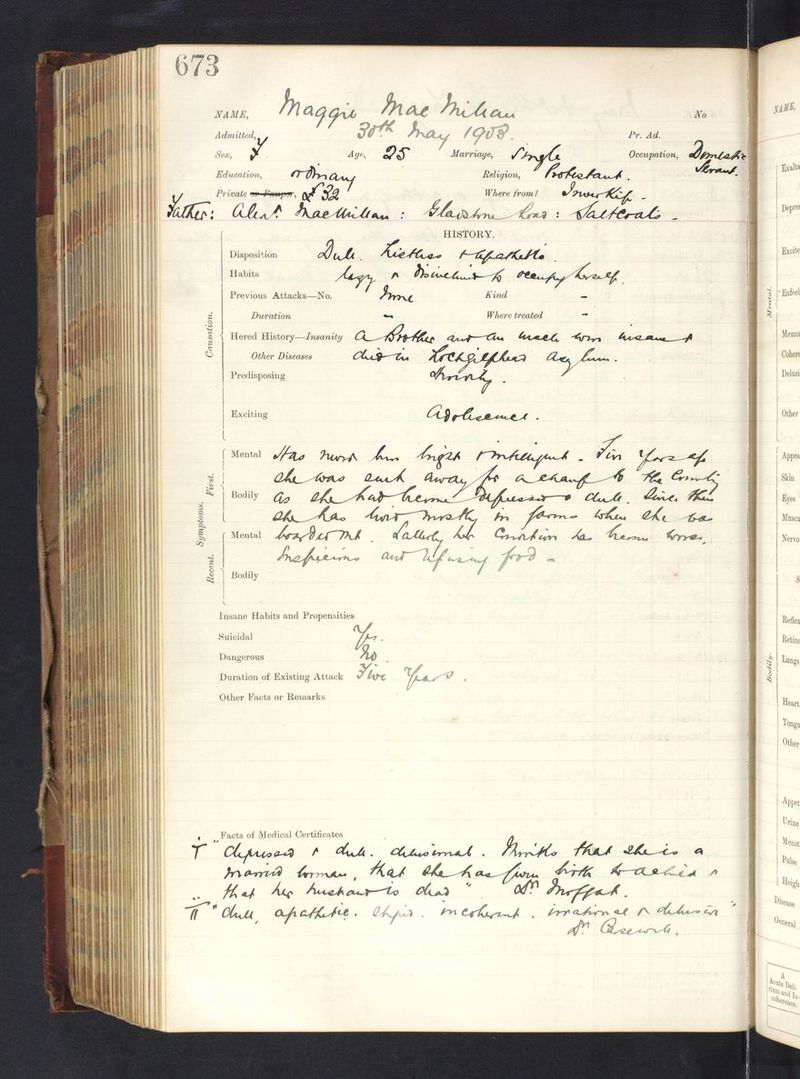 673
NAME, Maggie MacMillan No
Admitted, 30th May 1908. Pr. Ad.
Sex, F Age, 25 Marriage, Single Occupation, Domestic Servant.
Education, ordinary Religion, Protestant.
Private or Pauper, £32 Where from? Inverkip -
Father: Alexr. MacMillan: Gladstone Road: Saltcoats -
HISTORY.
Disposition Dull. Listless & Apathetic.
Habits lazy & disinclined to occupy herself.
Previous Attacks—No. None Kind -
Duration - Where treated -
Hered History—Insanity A Brother and an uncle were insane &
Other Diseases died in Lochgilphead Asylum.
Predisposing Heredity.
Causation.
Exciting Adolescence.
Mental Has never been bright & intelligent - Five years ago
she was sent away for a change to the Country
Bodily as she had become depressed & dull. Since then
she has lived mostly in farms where she was
Symptoms. First. Recent.
Mental boarded out. Latterly her condition has become worse,
Suspicious and refusing food -
Bodily
Insane Habits and Propensities
Suicidal Yes.
Dangerous No.
Duration of Existing Attack Five Years.
Other Facts or Remarks
Facts of Medical Certificates
I "depressed & dull. delusional. Thinks that she is a
married woman, that she has given birth to a child &
that her husband is dead" Dr. Moffat.
II "dull, apathetic. stupid. incoherent. irrational &
Dr.
NAME,
Mental.
Bodily.
Skin
Eyes
Heart
Other
Urine
Pulse
Disease
General
A
Acute Deli-
rium and In-
coherence.